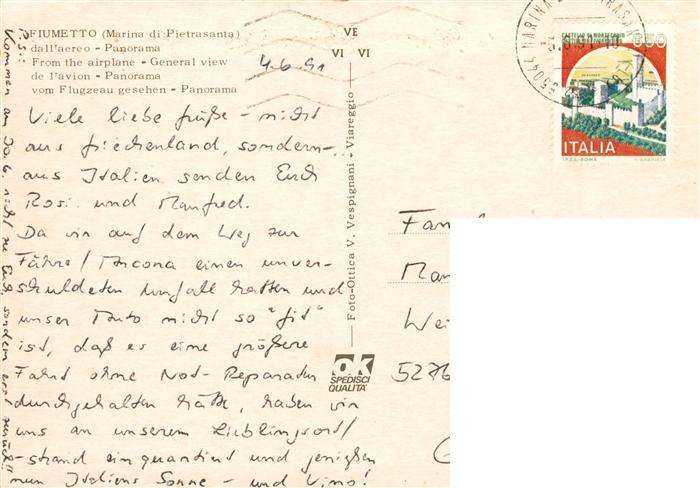 FIUMETTO (Marina di Pietrasanta)
dall'aereo - Panorama
From the airplane - General view
de l'avion - Panorama
vom Flugzeug gesehen - Panorama
VE
VI VI
4.6.91
Viele liebe Grüße - nicht
aus Griechenland, sondern -
aus Italien senden Euch
Rosi und Manfred.
Da wir auf dem Weg zur
Fähre/Ancona einen unver-
schuldeten Unfall hatten und
unser Auto nicht so "fit"
ist, daß es eine größere
Fahrt ohne Not-Reparaturen
durchgehalten hätte, haben wir
uns an unserem Lieblingsort/
-strand einquartiert und genießen
nun Italiens Sonne - und Vino!
P.S.:
Kommen am 10.6. nicht zu Euch, sondern erst zurück!!
Foto-Ottica V. Vespignani - Viareggio
ok
SPEDISCI
QUALITA'
650
ITALIA
I.P.Z.S. ROMA
55044 MARINA
Fam
Man
Wei
5276